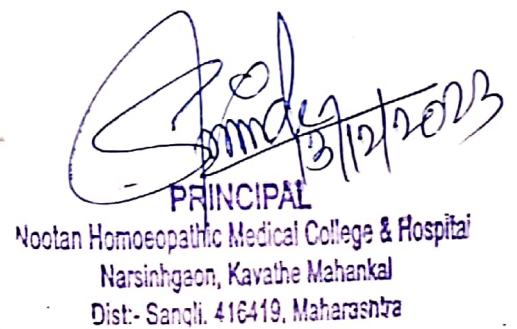 PRINCIPAL
Nootan Homoeopathic Medical College & Hospital
Narsinhgaon, Kavathe Mahankal
Dist:- Sangli. 416419, Maharashtra